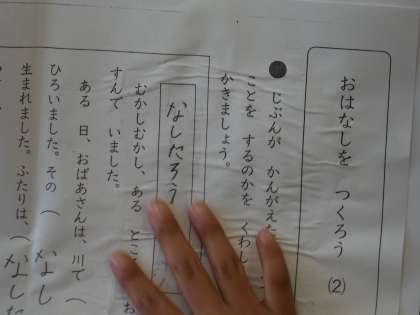 おはなしを つくろう (2)
じぶんが かんがえた
ことを するのかを くわし
かきましょう。
なしたろう
むかしむかし、ある とこ
すんで いました。
ある 日、おばあさんは、川で (
ひろいました。その ( なし
生まれました。ふたりは、( なした